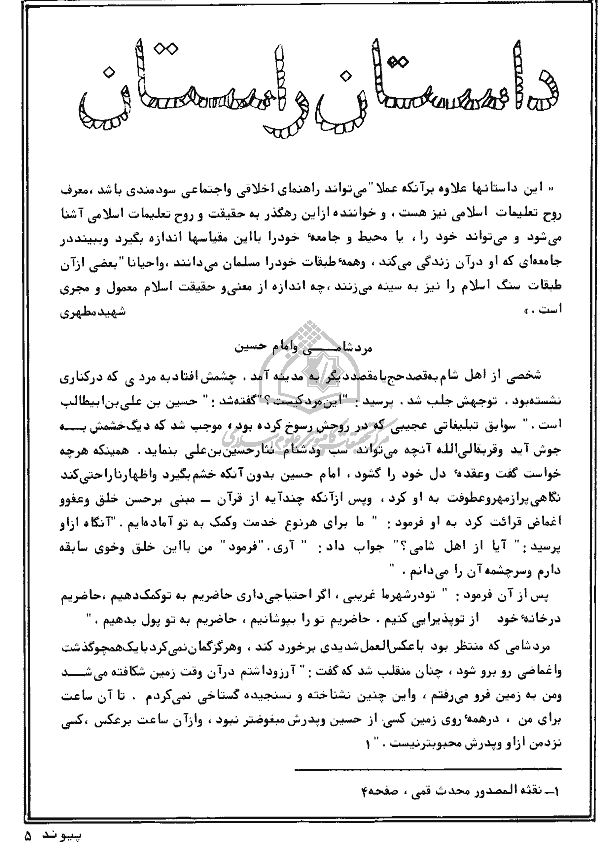 داستان راستان
« این داستانها علاوه برآنکه عملا" می‌تواند راهنمای اخلاقی واجتماعی سودمندی باشد ،معرف
روح تعلیمات اسلامی نیز هست ، و خواننده ازاین رهگذر به حقیقت و روح تعلیمات اسلامی آشنا
می‌شود و می‌تواند خود را ، یا محیط و جامعهٔ خودرا بااین مقیاسها اندازه بگیرد وببینددر
جامعه‌ای که او درآن زندگی می‌کند ، وهمهٔ طبقات خودرا مسلمان می‌دانند ،واحیانا" بعضی ازآن
طبقات سنگ اسلام را نیز به سینه می‌زنند ،چه اندازه از معنی‌و حقیقت اسلام معمول و مجری
است .» شهیدمطهری
مردشامی وامام حسین
شخصی از اهل شام‌به‌قصدحج‌یامقصددیگر به مدینه آمد . چشمش افتادبه مردی که درکناری
نشسته‌بود . توجهش جلب شد . پرسید : "این‌مردکیست ؟"گفته‌شد : " حسین بن علی‌بن‌ابیطالب
است . " سوابق تبلیغاتی عجیبی که در روحش رسوخ کرده بود ، موجب شد که دیگ‌خشمش به
جوش آید وقربةالی‌الله آنچه می‌تواند سب ودشنام نثارحسین‌بن‌علی بنماید . همینکه هرچه
خواست گفت وعقدهٔ دل خود را گشود ، امام حسین بدون آنکه خشم‌بگیرد واظهارناراحتی‌کند
نگاهی‌پرازمهروعطوفت به او کرد ، وپس ازآنکه چندآیه از قرآن ــ مبنی برحسن خلق وعفوو
اغماض قرائت کرد به او فرمود : " ما برای هرنوع خدمت وکمک به تو آماده‌ایم . "آنگاه ازاو
پرسید : " آیا از اهل شامی ؟" جواب داد : " آری . "فرمود" من بااین خلق وخوی سابقه
دارم وسرچشمه آن را می‌دانم . "
پس از آن فرمود : " تودرشهرما غریبی ، اگر احتیاجی‌داری حاضریم به توکمک‌دهیم ،حاضریم
درخانهٔ خود از توپذیرایی کنیم . حاضریم تو را بپوشانیم ، حاضریم به تو پول بدهیم . "
مردشامی که منتظر بود باعکس‌العمل‌شدیدی برخورد کند ، وهرگزگمان‌نمی‌کردبایک‌همچوگذشت
واغماضی رو برو شود ، چنان منقلب شد که گفت : " آرزوداشتم درآن وقت زمین شکافته می‌شد
ومن به زمین فرو می‌رفتم ، واین چنین نشناخته و نسنجیده گستاخی نمی‌کردم . تا آن ساعت
برای من ، درهمهٔ روی زمین کسی از حسین وپدرش مبغوضتر نبود ، وازآن ساعت برعکس ،کسی
نزدمن ازاو وپدرش محبوبترنیست . " ۱
۱ــ نفثه المصدور محدث قمی ، صفحه۴
پیوند ۵